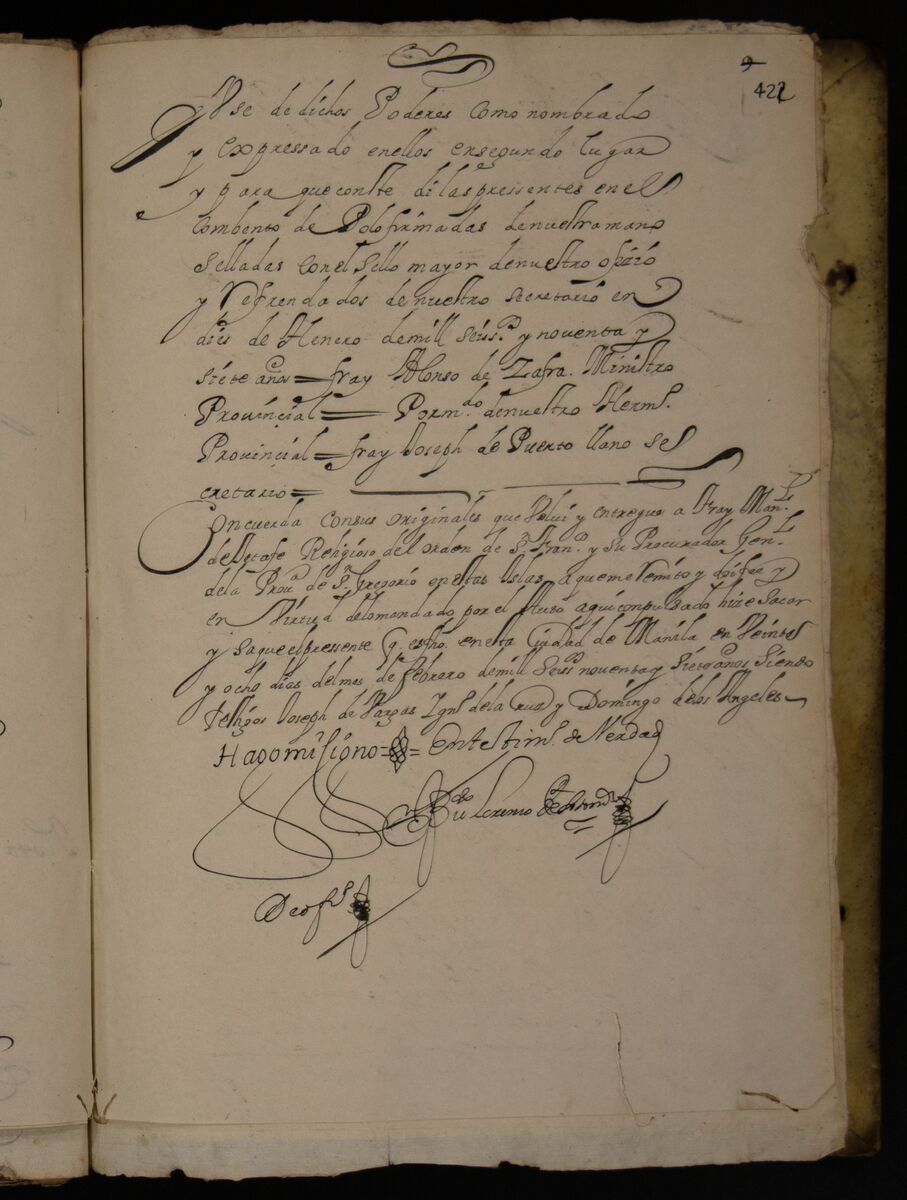 422
y Vse de dichos Poderes como nombrado
y expressado enellos ensegundo lugar
y para queconste di las pressentes en el
Combento de Polo firmadas denuestra mano
Selladas conel Sello mayor denuestro offizio
y Refrendados de nuestro secretario en
dies de Henero demill seiss.s y noventa y
siete años = fray Alonso de Zafra. Ministro
Provinçial = Porm.do denuestro Herm.o
Provinçial = fray Joseph de Puerto llano se
cretario =
Concuerda consus originales que Volvi y entregue a Fray Man.l
de Jetafe Religioso del orden de S.n Fran.co y su Procurador Gen.l
dela Prou.a de S.n Gregorio enestas Yslas, aquemeremito y dhi fee y
en Virtud delomandado por el Auto aqui conpulsado hize sacar
y saque elpressente q. es fho. en esta Ciudad de Manila en Veinte
y ocho dias delmes de febrero demill seiss.s noventa y sieteaños siendo
testigos Joseph de Vargas Ygn.o dela Cruz y Domingo delos Angeles
Hago mi signo = = En testim.o de Verdad
Dro f.s